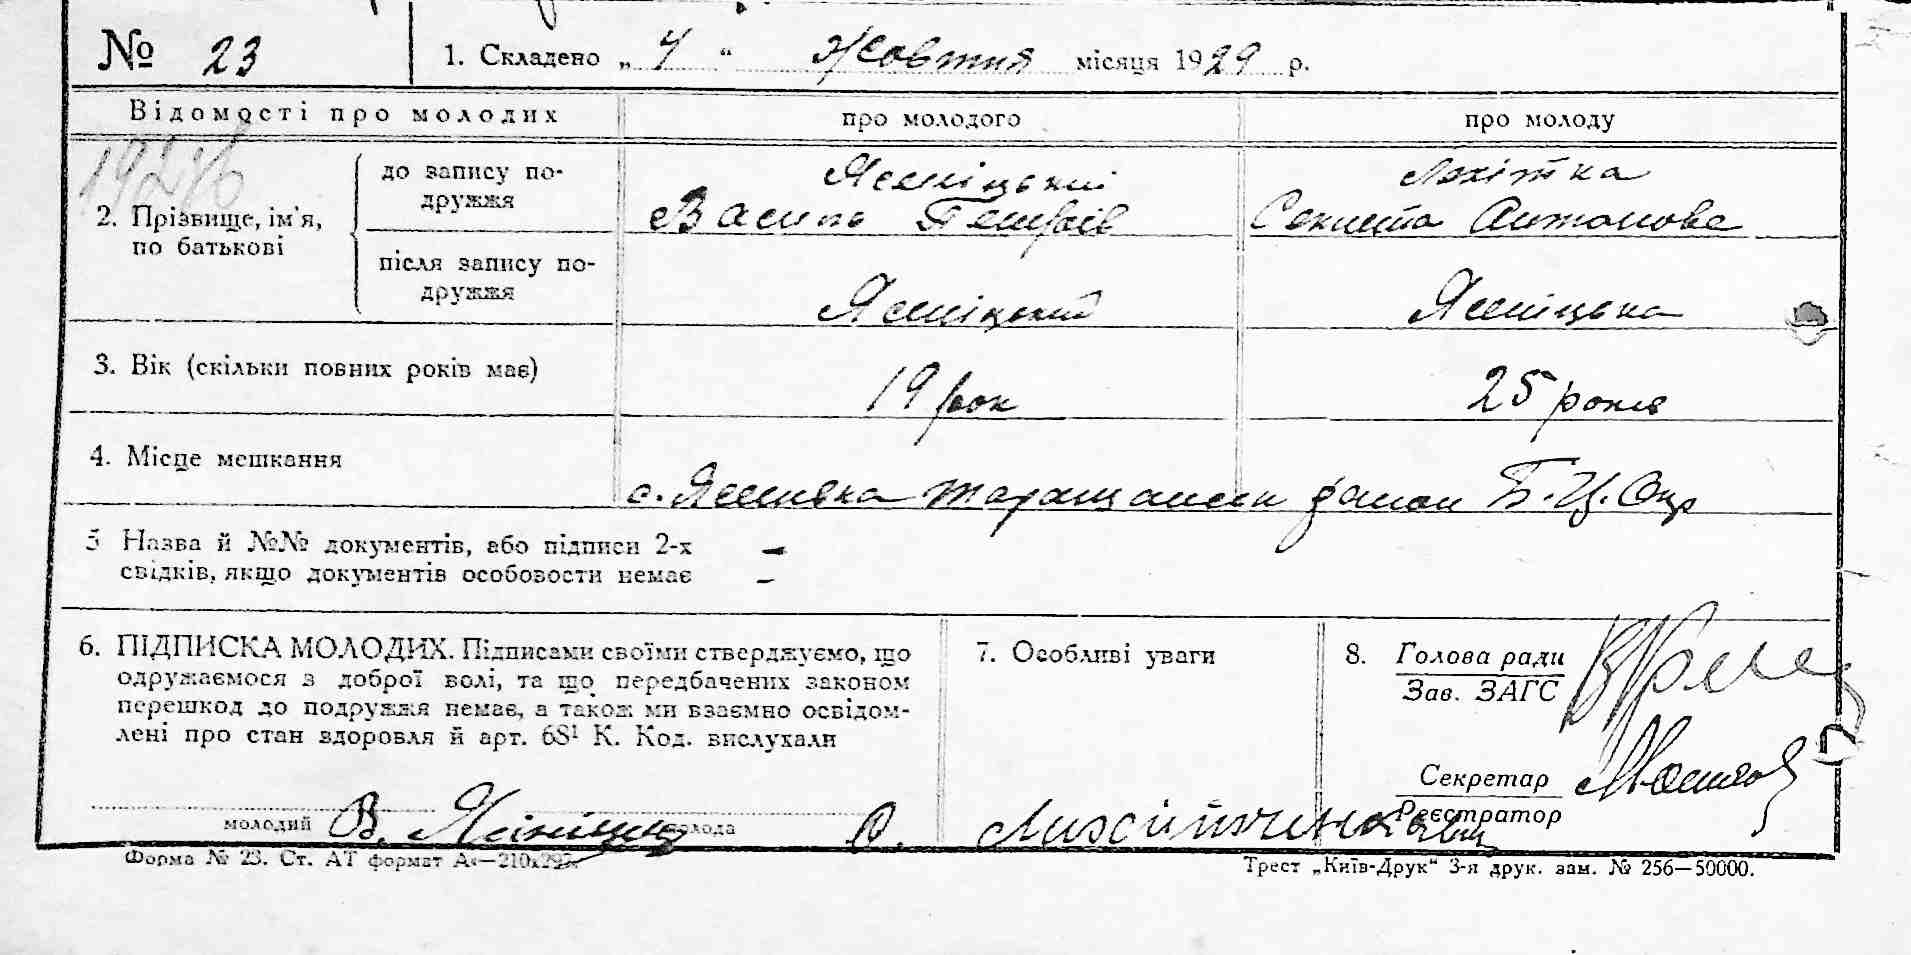 № 23
1. Складено „4“ Жовтня місяця 1929 р.
Відомості про молодих
про молодого
про молоду
2. Прізвище, ім'я, по батькові
до запису по-
дружжя
Ясніцький
Василь
Антонова
після запису по-
дружжя
Ясніцький
Ясніцька
3. Вік (скільки повних років має)
19 рок
25 років
4. Місце мешкання
с. Таращанськ Б.Ц. Окр
5 Назва й №№ документів, або підписи 2-х
свідків, якщо документів особовости немає
–
–
6. ПІДПИСКА МОЛОДИХ. Підписами своїми стверджуємо, що
одружаємося з доброї волі, та що передбачених законом
перешкод до подружжя немає, а також ми взаємно освідом-
лені про стан здоровля й арт. 68¹ К. Код. вислухали
молодий В.
молода
7. Особливі уваги
8. Голова ради
Зав. ЗАГС
Секретар
Реєстратор
Форма № 23. Ст. АТ формат А₄—210x297.
Трест „Київ-Друк“ 3-я друк. зам. № 256—50000.